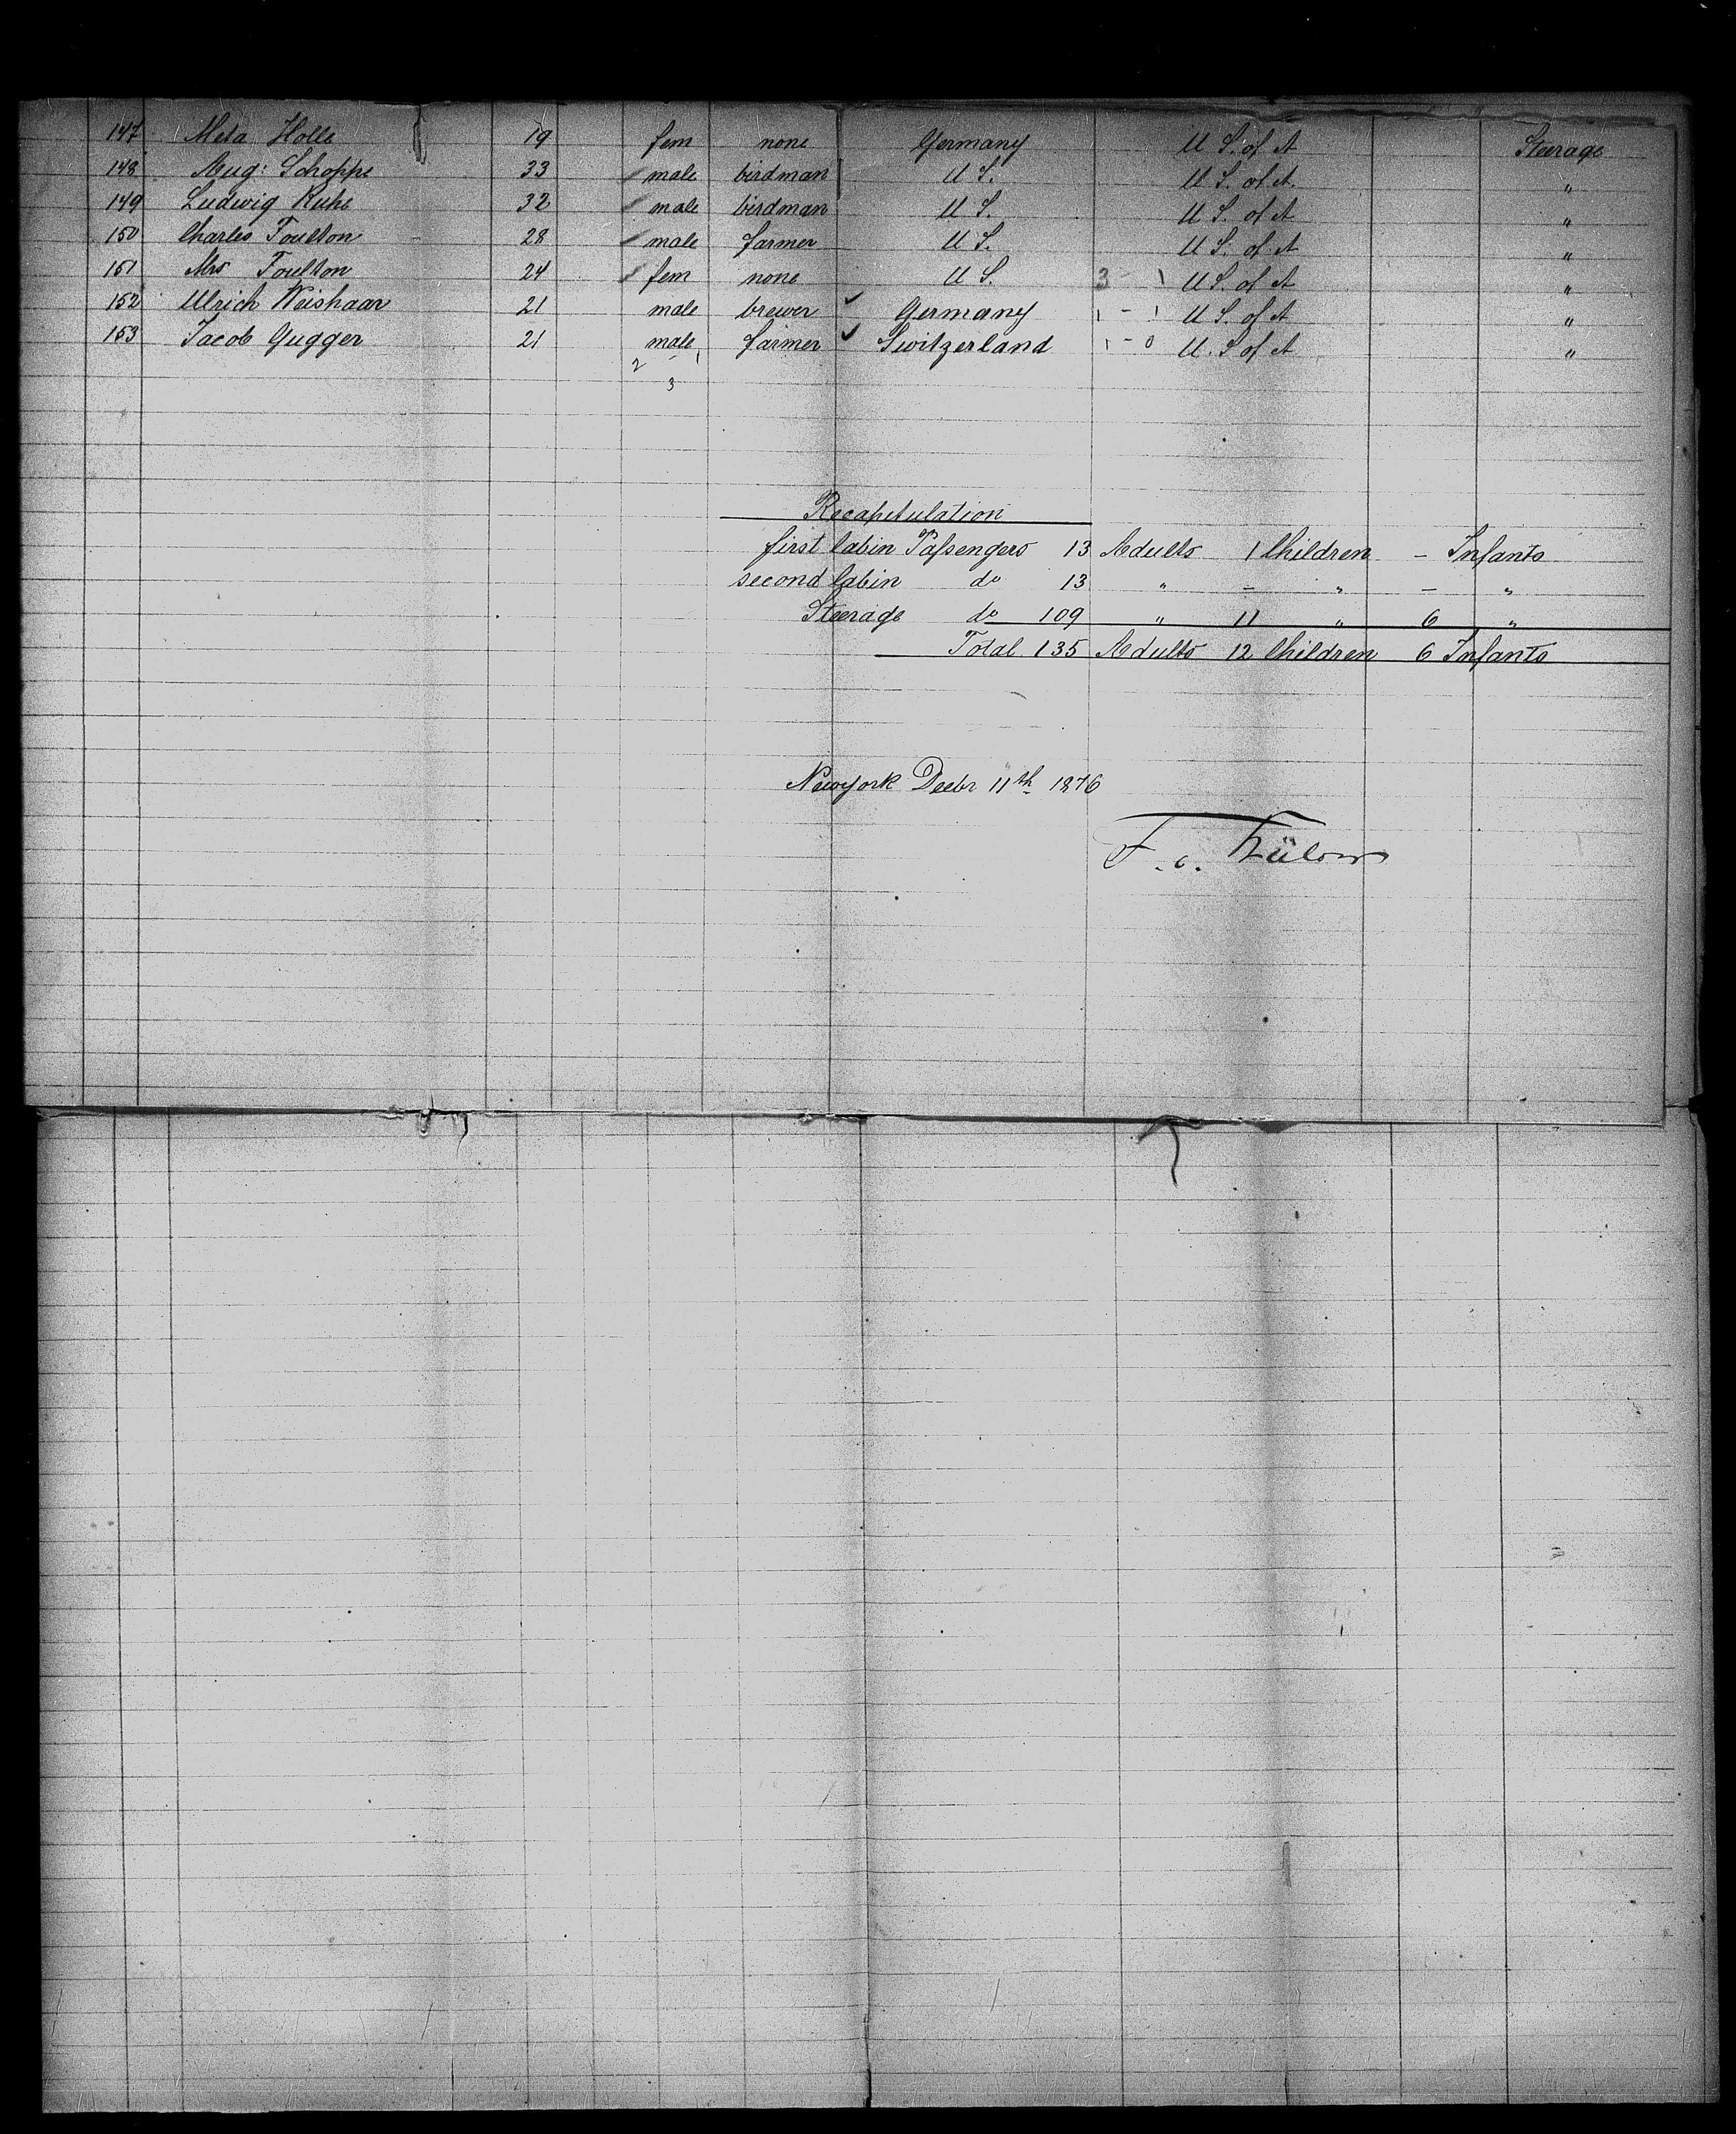 147 Meta Holle 19 fem none Germany U S. of A Steerage
148 Aug: Schoppe 33 male birdman U S. U S. of A. "
149 Ludwig Ruhe 32 male birdman U S. U S. of A "
150 Charles Foulton 28 male farmer U S. U S. of A "
151 Mrs Foulton 24 fem none U S. 3 - 1 U S. of A "
152 Ulrich Weishaar 21 male brewer Germany 1 - 1 U S. of A "
153 Jacob Gugger 21 male farmer Switzerland 1 - 0 U. S of A "
2 - 1
3
Recapitulation
first Cabin Passengers 13 Adults 1 Children - Infants
second Cabin do 13 " - " - "
Steerage do 109 " 11 " 6 "
Total 135 Adults 12 Children 6 Infants
Newyork Decbr 11th 1876
F.